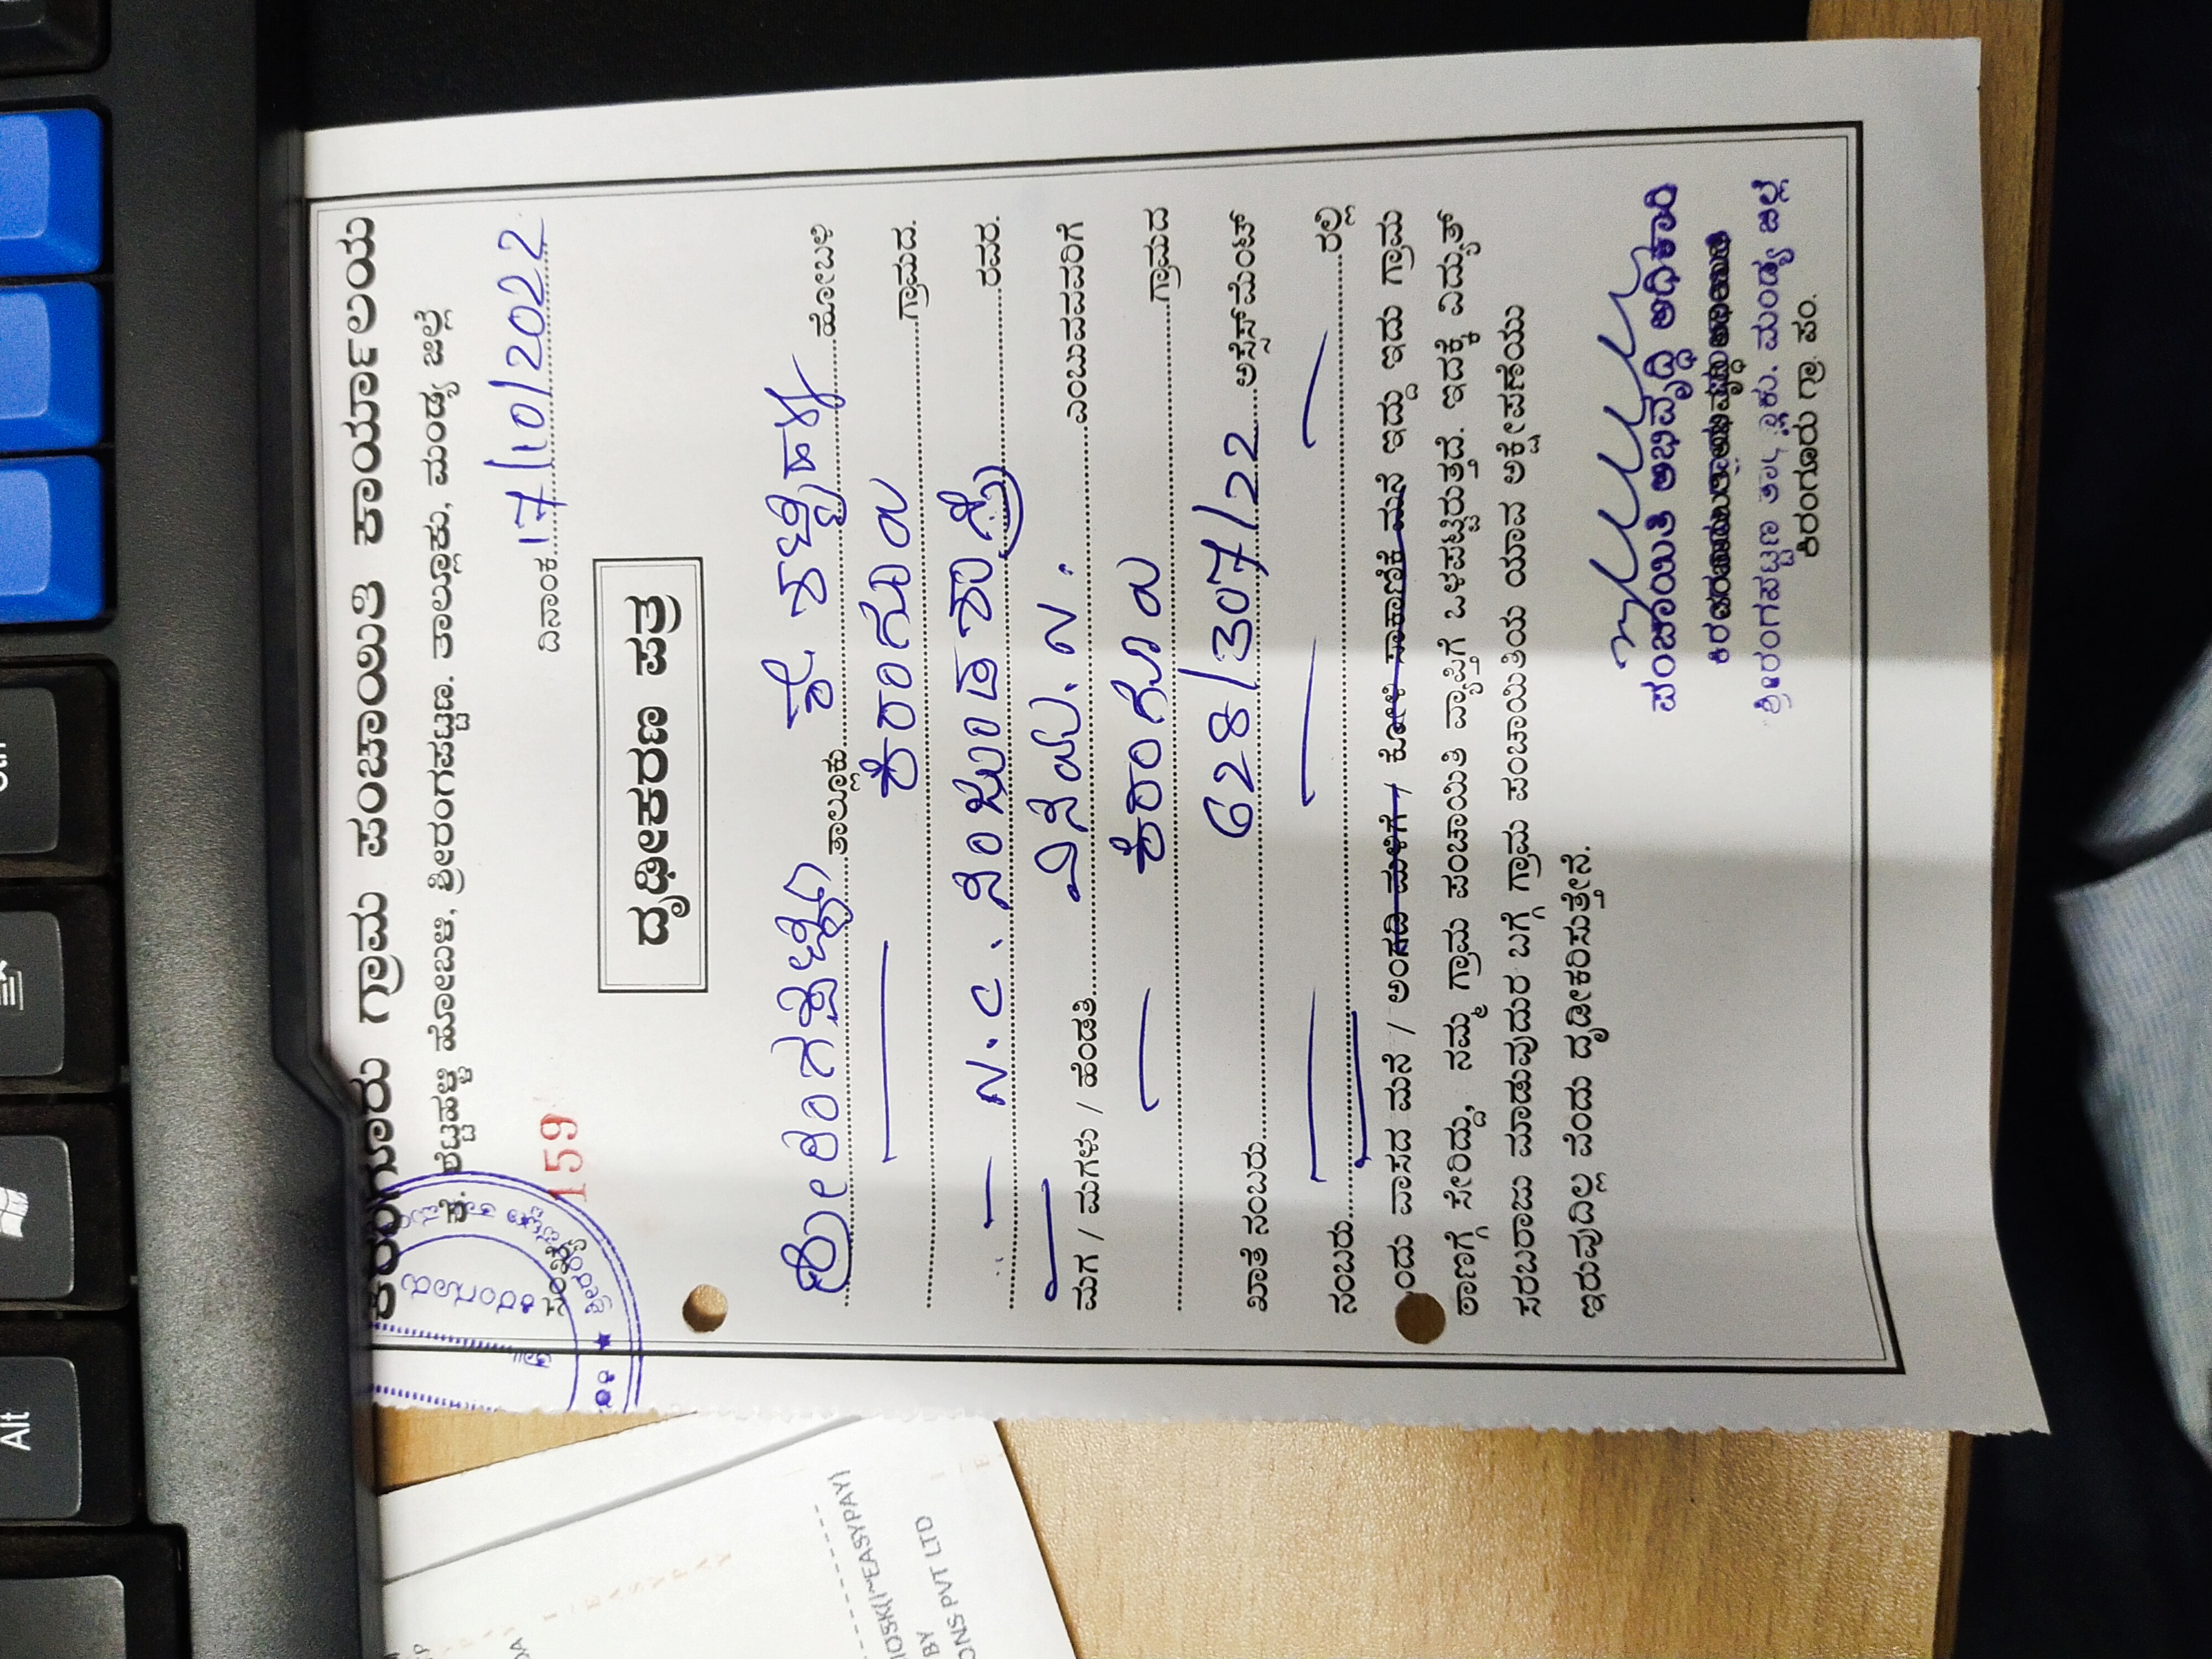 ಕಿರಂಗೂರು ಗ್ರಾಮ ಪಂಚಾಯಿತಿ ಕಾರ್ಯಾಲಯ
ಕೆ. ಶೆಟ್ಟಹಳ್ಳಿ ಹೋಬಳಿ, ಶ್ರೀರಂಗಪಟ್ಟಣ. ತಾಲ್ಲೂಕು, ಮಂಡ್ಯ ಜಿಲ್ಲೆ
ಸಂಖ್ಯೆ 159 ದಿನಾಂಕ 17/10/2022
ದೃಢೀಕರಣ ಪತ್ರ
ಶ್ರೀರಂಗಪಟ್ಟಣ ತಾಲ್ಲೂಕು ಕೆ. ಶೆಟ್ಟಿಹಳ್ಳಿ ಹೋಬಳಿ
ಕಿರಂಗೂರು ಗ್ರಾಮದ.
N.C. ನಂಜುಂಡ ರವರ.
ಮಗ / ಮಗಳು / ಹೆಂಡತಿ ವಿನಯ್. N. ಎಂಬುವವರಿಗೆ
ಕಿರಂಗೂರು ಗ್ರಾಮದ
ಖಾತೆ ನಂಬರು 628/307/22 ಅಸೆಸ್‌ಮೆಂಟ್
ನಂಬರು ರಲ್ಲಿ
ಒಂದು ವಾಸದ ಮನೆ / ಅಂಗಡಿ ಮಳಿಗೆ / ಕೋಳಿ ಸಾಕಾಣಿಕೆ ಮನೆ ಇದ್ದು ಇದು ಗ್ರಾಮ
ಠಾಣಗ್ಗೆ ಸೇರಿದ್ದು, ನಮ್ಮ ಗ್ರಾಮ ಪಂಚಾಯಿತಿ ವ್ಯಾಪ್ತಿಗೆ ಒಳಪಟ್ಟಿರುತ್ತದೆ. ಇದಕ್ಕೆ ವಿದ್ಯುತ್
ಸರಬರಾಜು ಮಾಡುವುದುರ ಬಗ್ಗೆ ಗ್ರಾಮ ಪಂಚಾಯಿತಿಯ ಯಾವ ಆಕ್ಷೇಪಣೆಯು
ಇರುವುದಿಲ್ಲ ವೆಂದು ದೃಡೀಕರಿಸುತ್ತೇನೆ.
ಪಂಚಾಯಿತಿ ಅಭಿವೃದ್ಧಿ ಅಧಿಕಾರಿ
ಶ್ರೀರಂಗಪಟ್ಟಣ ತಾಲ್ಲೂಕು. ಮಂಡ್ಯ ಜಿಲ್ಲೆ
ಕಿರಂಗೂರು ಗ್ರಾ. ಪಂ.
ಕಿರಂಗೂರು
Alt
IOSK(I~EASYPAY)
BY
ONS PVT LTD